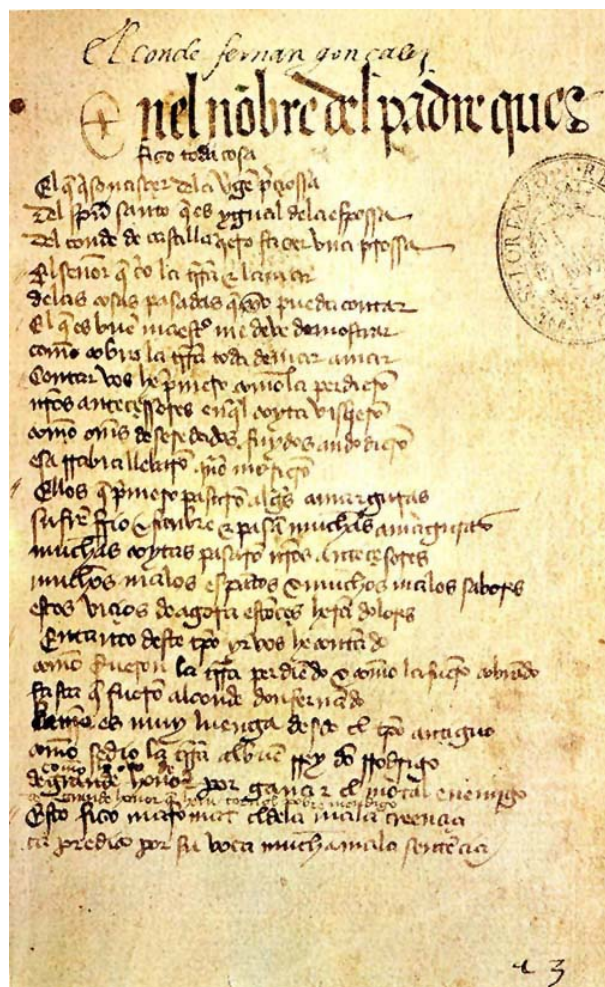 El conde fernan gonçalez
Enel nõbre del padre ques
fizo toda cosa
El q̃ q̃so nasçer dela vỹgẽ p̃çiossa
Del sp̃u santo q̃ es ygual dela espossa
Del conde de castilla q̃ero façer vna prossa
El señor q̃ crio la trr̃a & la mar
delas cosas pasadas q̃ yo pueda contar
El q̃ es buẽ maest° me deue demostrar
como cobro la trr̃a toda de mar a mar
Contar vos he p̃mero como la perdierõ
nr̃os anteçessores en q̃l coyta visq̃erõ
como om̃s deseredados fuydos andodierõ
esa rrabia llebarõ
Ellos q̃ p̃mero pasarõ
sufrẽ frio & fanbre & pasã muchas amarguras
muchas coytas pasarõ nr̃os anteçesores
muchos malos espãtos & muchos malos sabores
estos viçios de agora estõçes herã dolores
Entanto deste tp̃o yr vos he contãdo
como fueron la trr̃a perdiẽdo & como la fuerõ cobrãdo
fasta q̃ fuerõ al conde don fernãdo
como es muy luenga desde el tp̃o antiguo
como se dio la trr̃a al buẽ rrey dõ rrodrigo
como
de grande honor por ganar el mortal enemigo
grande honor pobre mendigo
Esto fizo mafomat el dela mala creençia
ca predico por su voca mucha mala sentẽçia
S. LORENZO
3